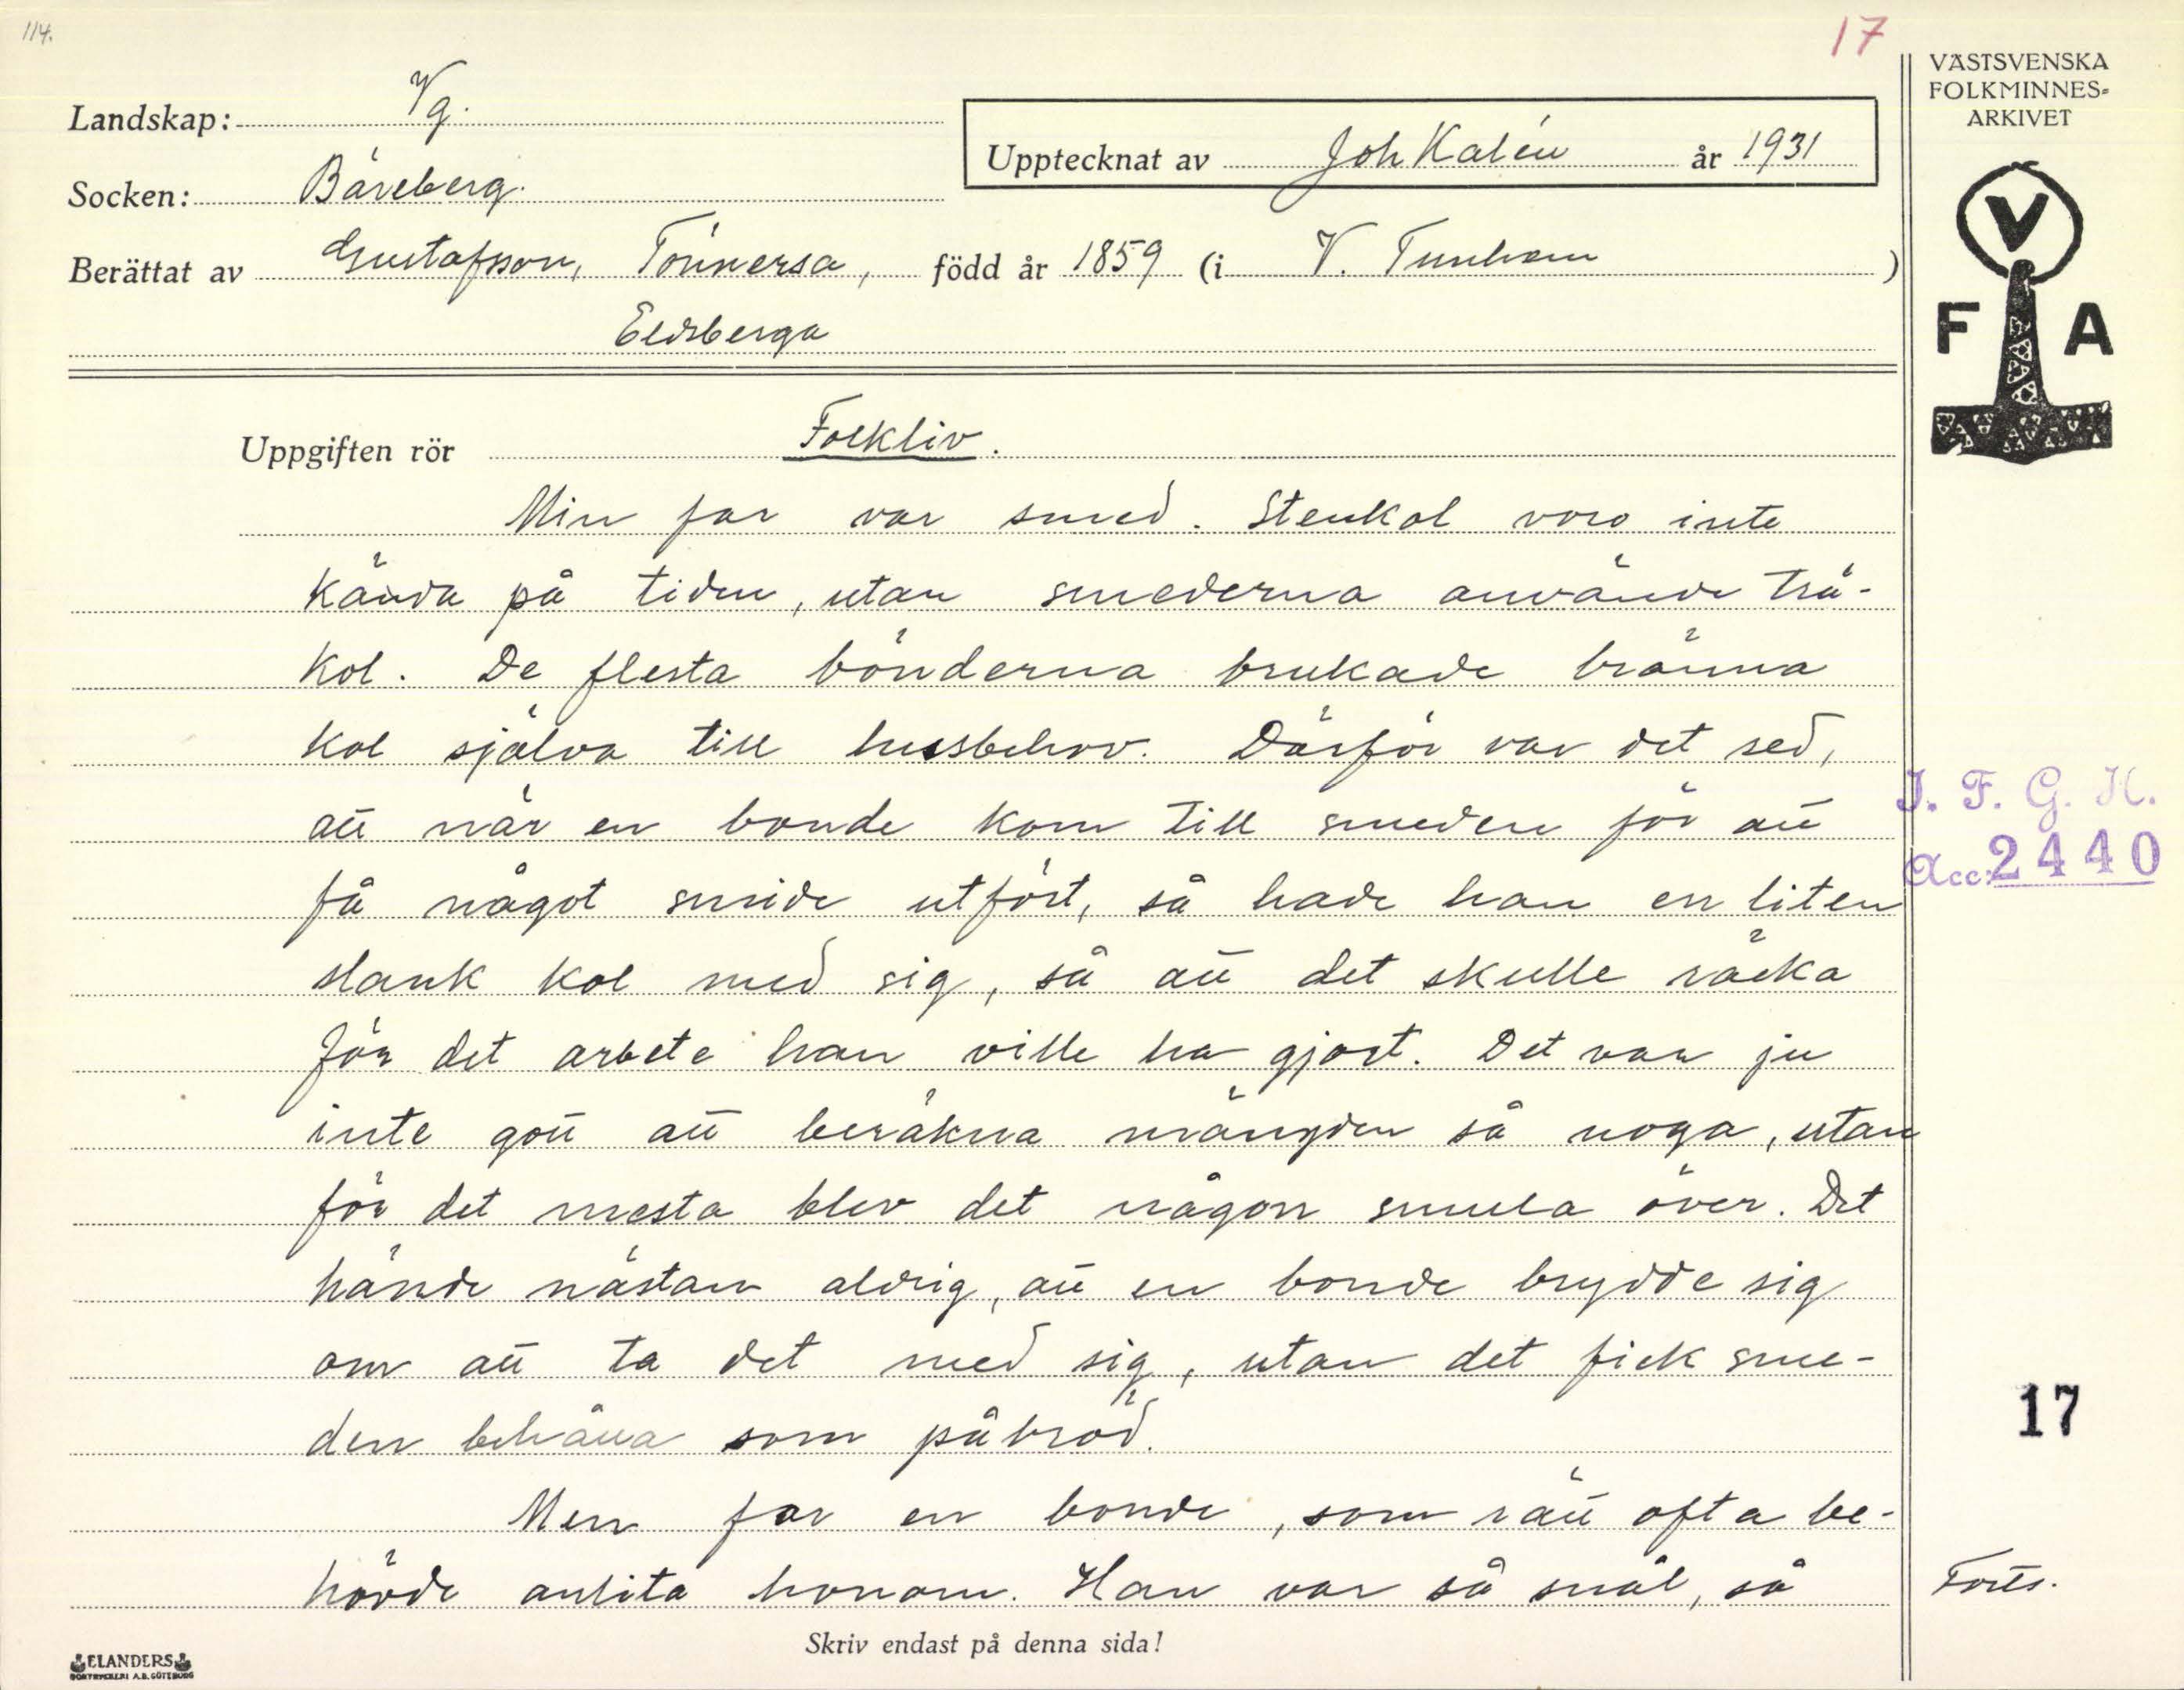 114.
17
Landskap: Vg.
Socken: Bäreberg.
Upptecknat av Joh Kalén år 1931
Berättat av Gustafsson, Tönnersa, född år 1859 (i V. Tunhem)
Eldsberga
VÄSTSVENSKA
FOLKMINNES-
ARKIVET
V
F A
Uppgiften rör Folkliv.
Min far var smed. Stenkol voro inte
kända på tiden, utan smederna använde trä-
kol. De flesta bönderna brukade bränna
kol själva till husbehov. Därför var det sed,
att när en bonde kom till smeden för att
få något smide utfört, så hade han en liten
slank kol med sig, så att det skulle räcka
för det arbete han ville ha gjort. Det var ju
inte gott att beräkna mängden så noga, utan
för det mesta blev det någon smula över. Det
hände nästan aldrig, att en bonde brydde sig
om att ta det med sig, utan det fick sme-
den behålla som påbröd.
Men far en bonde, som rätt ofta be-
hövde anlita honom. Han var så snål, så
I. F. G. H.
Acc: 2440
17
Forts.
Skriv endast på denna sida!
ELANDERS
BOKTRYCKERI A.B. GÖTEBORG